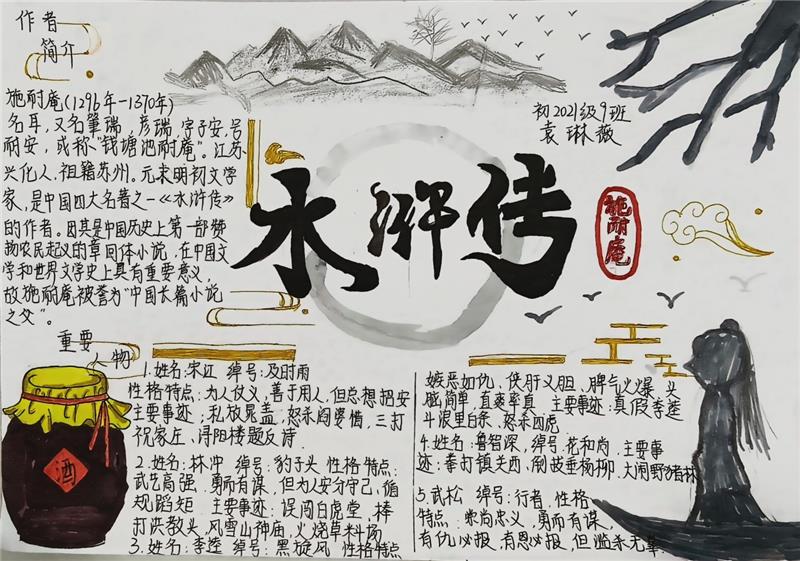 作者
简介
施耐庵(1296年—1370年)
名耳,又名肇瑞,彦瑞,字子安,号
耐安,或称"钱塘施耐庵"。江苏
兴化人,祖籍苏州。元末明初文学
家,是中国四大名著之一《水浒传》
的作者。因其是中国历史上第一部赞
扬农民起义的章回体小说,在中国文
学和世界文学史上具有重要意义,
故施耐庵被誉为"中国长篇小说
之父"。
初2021级9班
袁琳薇
水浒传
施耐庵
重要
人物
酒
1.姓名:宋江 绰号:及时雨
性格特点:为人仗义,善于用人,但总想招安
主要事迹:私放晁盖,怒杀阎婆惜,三打
祝家庄、浔阳楼题反诗.
2.姓名:林冲 绰号:豹子头 性格特点:
武艺高强、勇而有谋,但为人安分守己、循
规蹈矩 主要事迹:误闯白虎堂、棒
打洪教头,风雪山神庙,火烧草料场
3.姓名:李逵 绰号:黑旋风 性格特点
嫉恶如仇、侠肝义胆、脾气火爆、头
脑简单 直爽率真 主要事迹:真假李逵
斗浪里白条、怒杀四虎
4.姓名:鲁智深,绰号:花和尚.主要事
迹:拳打镇关西、倒拔垂杨柳.大闹野猪林
5.武松 绰号:行者,性格
特点:崇尚忠义,勇而有谋,
有仇必报,有恩必报,但滥杀无辜.